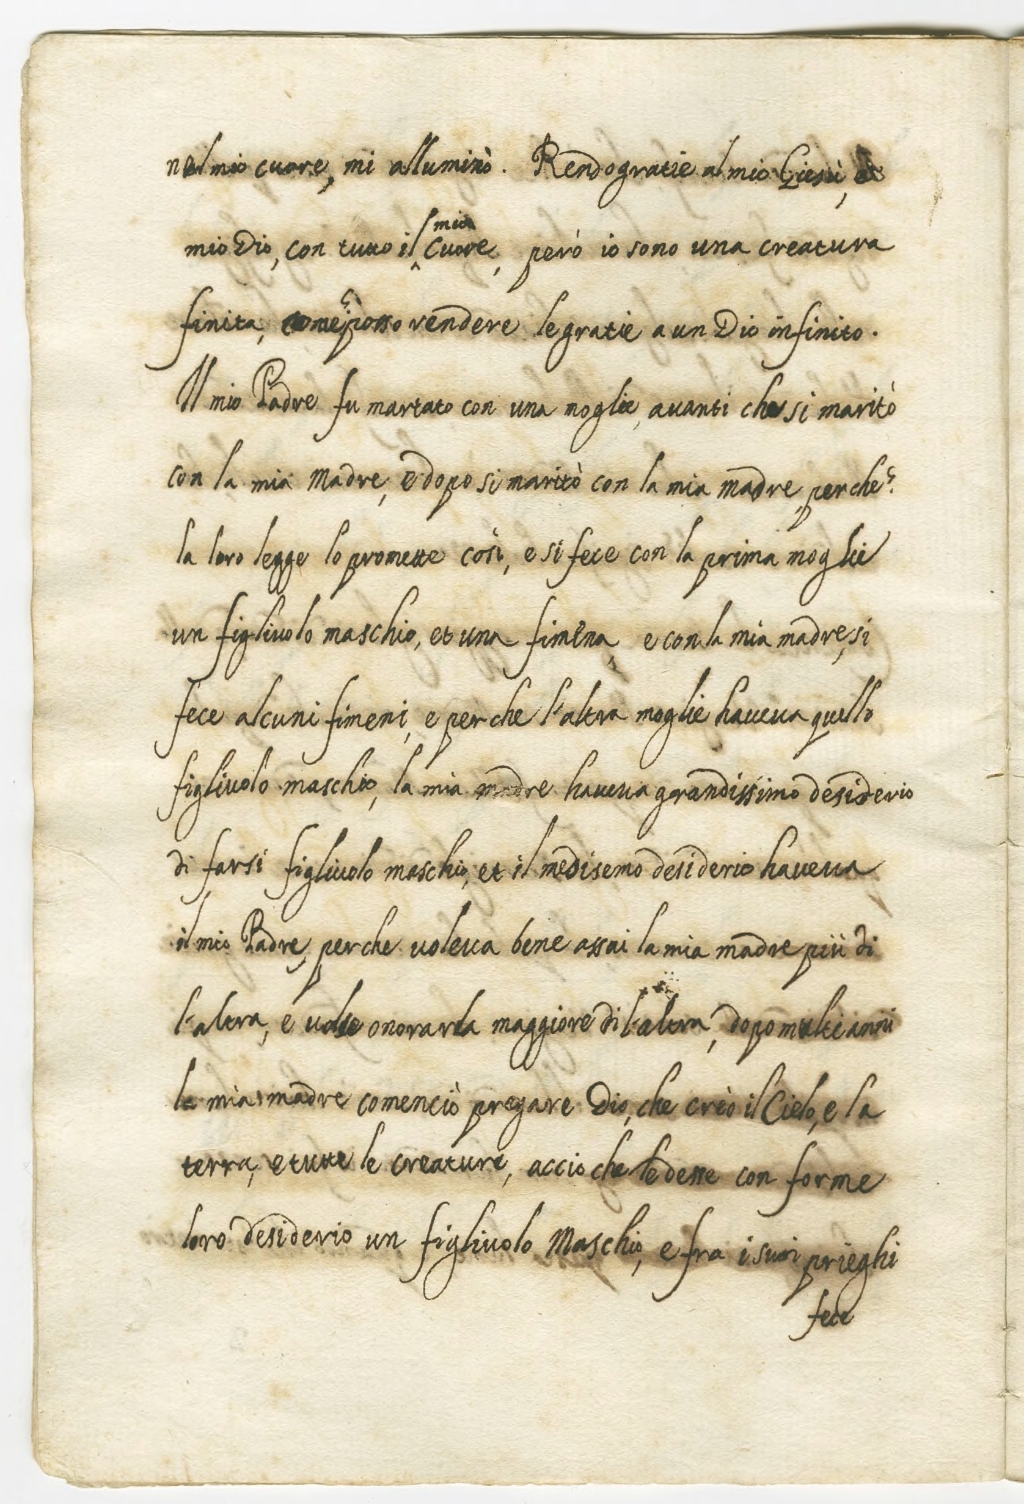 nel mio cuore, mi alluminò. Rendogratie al mio Giesù, et
mio Dio, con tutto il mio Cuore, però io sono una creatura
finita, come posso rendere le gratie a un Dio infinito.
Il mio Padre fu martato con una moglie, auanti che si maritò
con la mia Madre, e dopo si maritò con la mia madre, perche
la loro legge lo promette cosi, e si fece con la prima moglie
un figliuolo maschio, et una fimena, e con la mia madre, si
fece alcuni fimeni, e perche l'altra moglie haueua quello
figliuolo maschio, la mia madre haueua grandissimo desiderio
di farsi figliuolo maschio, et il medisemo desiderio haueua
il mio Padre, perche uoleua bene assai la mia madre più di
l'altra, e uolse onorarla maggiore di l'altra, dopo multi anni
la mia madre comenciò pregare Dio, che creò il Cielo, e la
terra, e tutte le creature, accio che le desse con forme
loro desiderio un figliuolo Maschio, e fra i suoi prieghi
fece